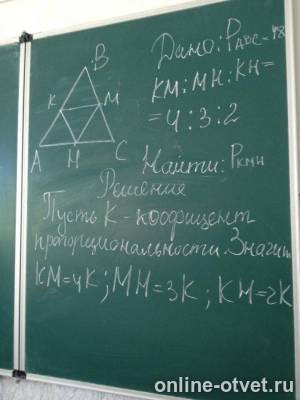 B
Дано: Pдвс=48
K M
KM:MH:KH=
=4:3:2
A H C
Найти: Pкмн
Решение
Пусть K-коофицент
пропорциональности. Значит
KM=4K; MH=3K; KH=2K
online-otvet.ru